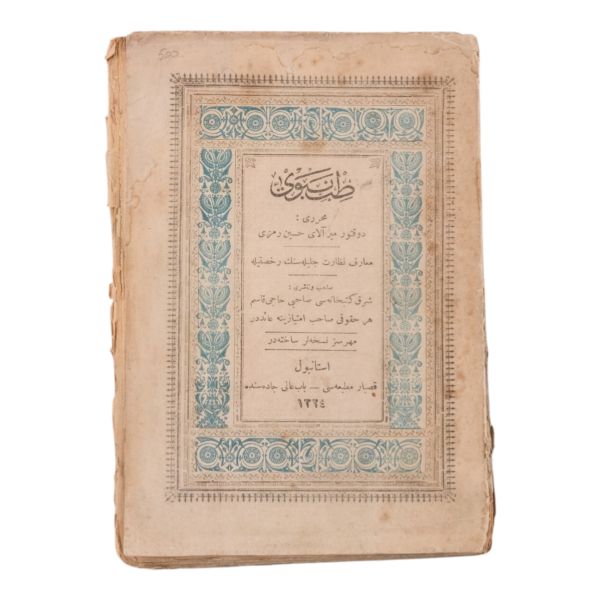 500
طب نبوی
محرری :
دوقتور میرآلای حسین رمزی
معارف نظارت جلیله‌سنك رخصتیله
صاحب و ناشری :
شرق كتبخانه‌سی صاحبی حاجی قاسم
هر حقوقی صاحب امتیازینه عائددر
مهرسز نسخه‌لر ساخته‌در
استانبول
قصبار مطبعه‌سی — باب عالی جاده‌سنده
١٣٢٤